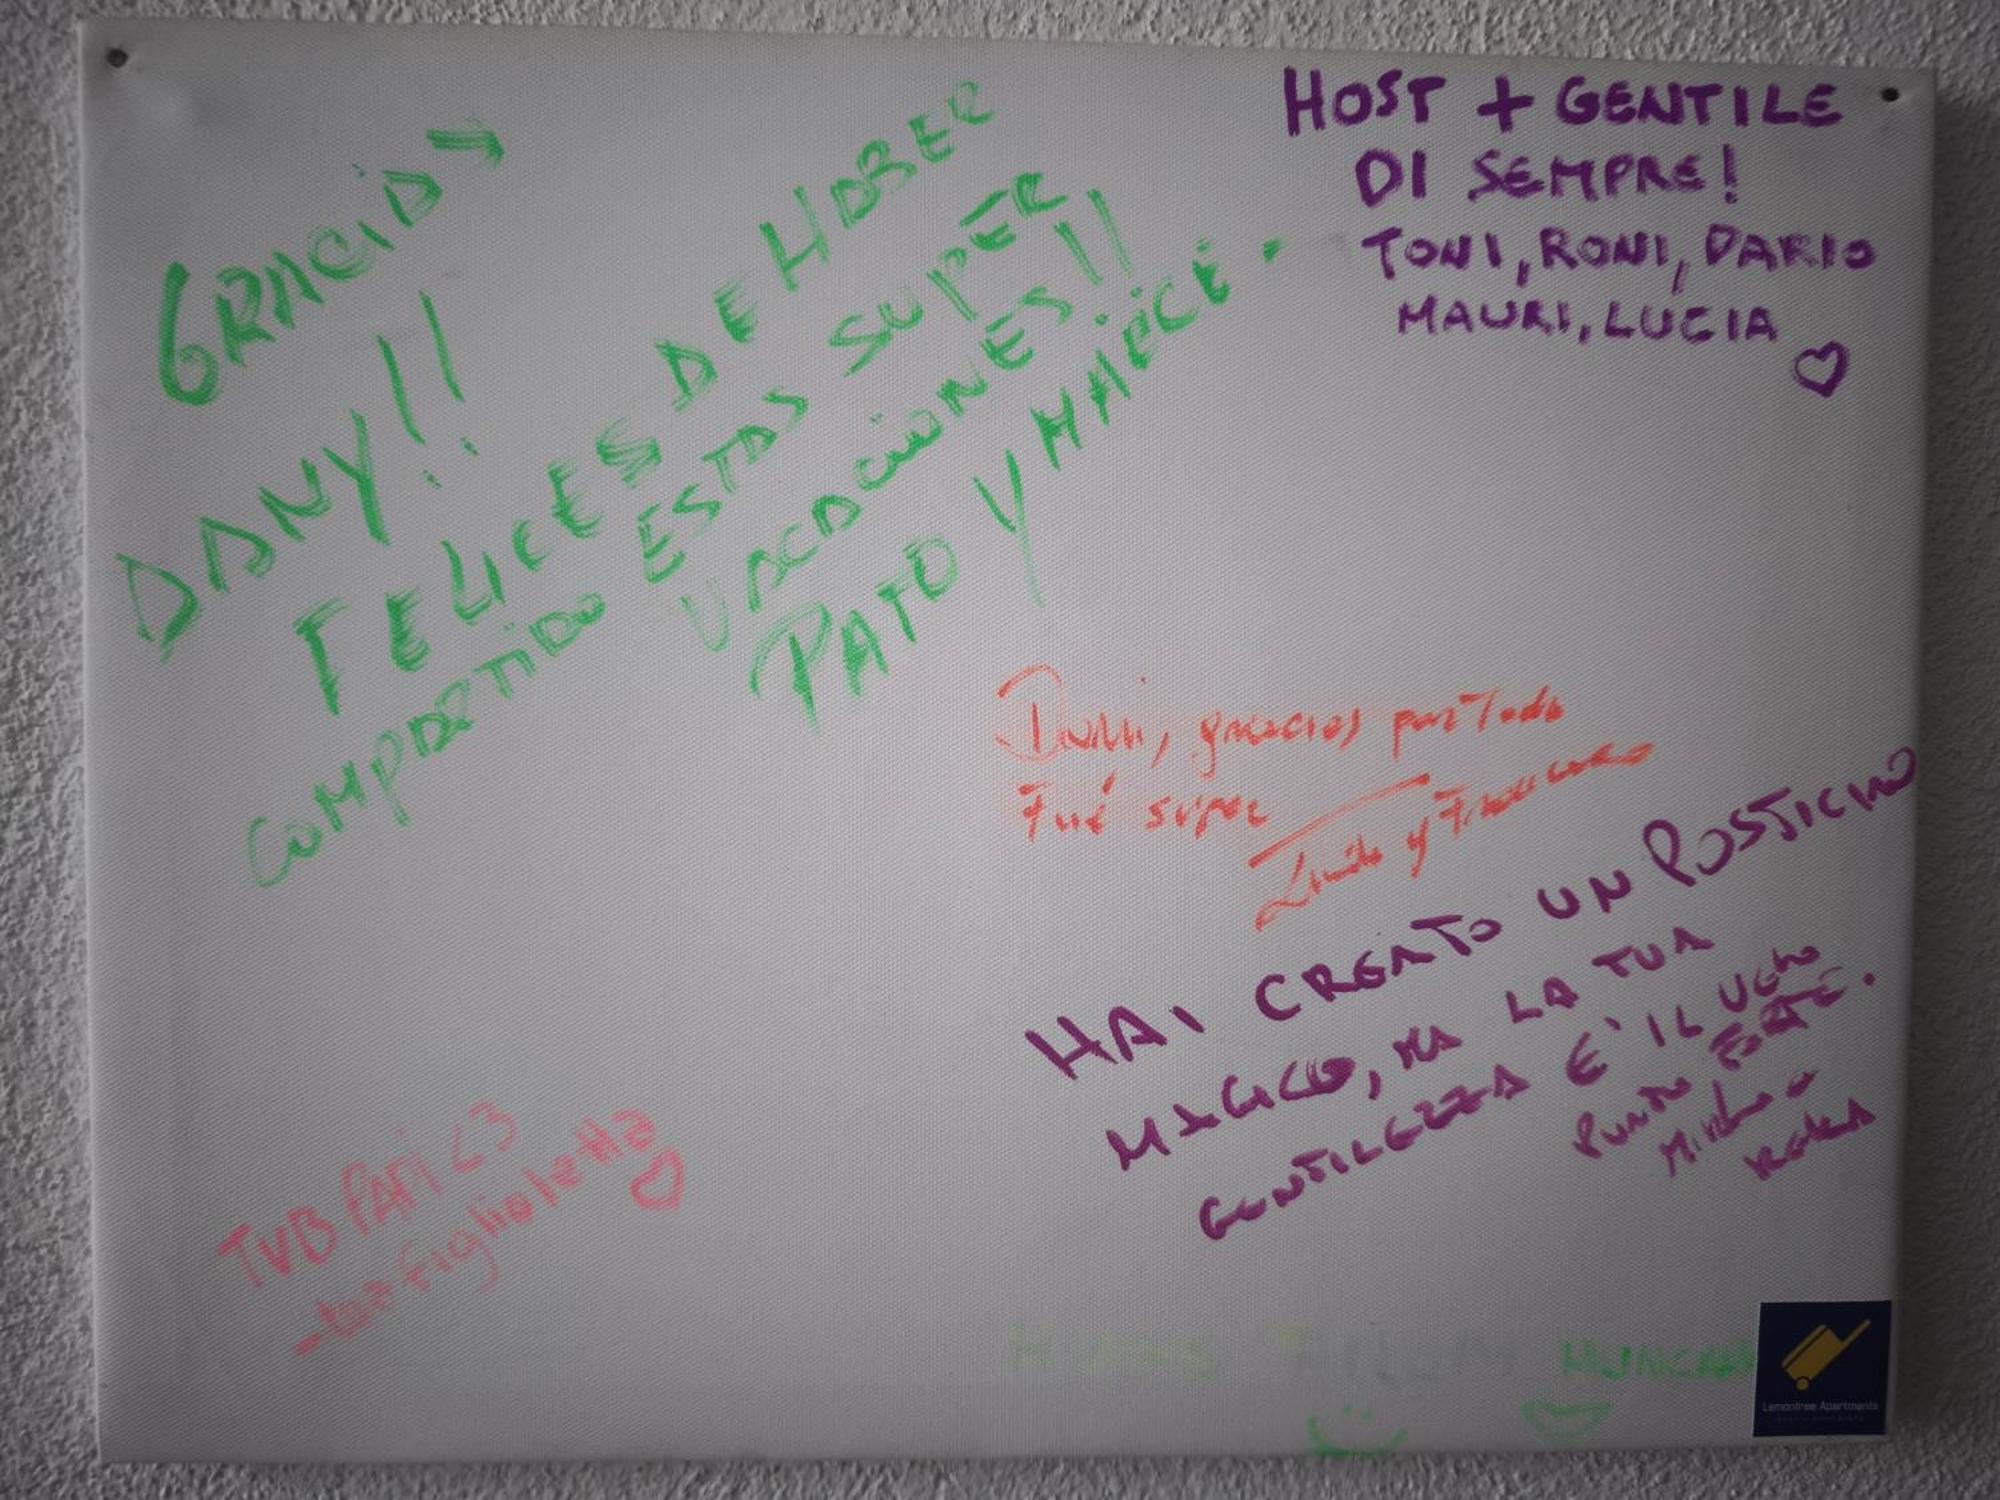 GRACIAS
DANY!!
FELICES DE HABER
COMPARTIDO ESTAS SUPER
VACACIONES!!
PATO Y MARCE.
HOST + GENTILE
DI SEMPRE!
TONI, RONI, DARIO
MAURI, LUCIA
Dani, gracias por todo
Fué super
y Francesco
HAI CREATO UN POSTICINO
MAGICO, MA LA TUA
GENTILEZZA E' IL VERO
PUNTO FORTE.
TVB PAPI <3
-tua figlioletta
FROM HUNGARY
Lemontree Apartments